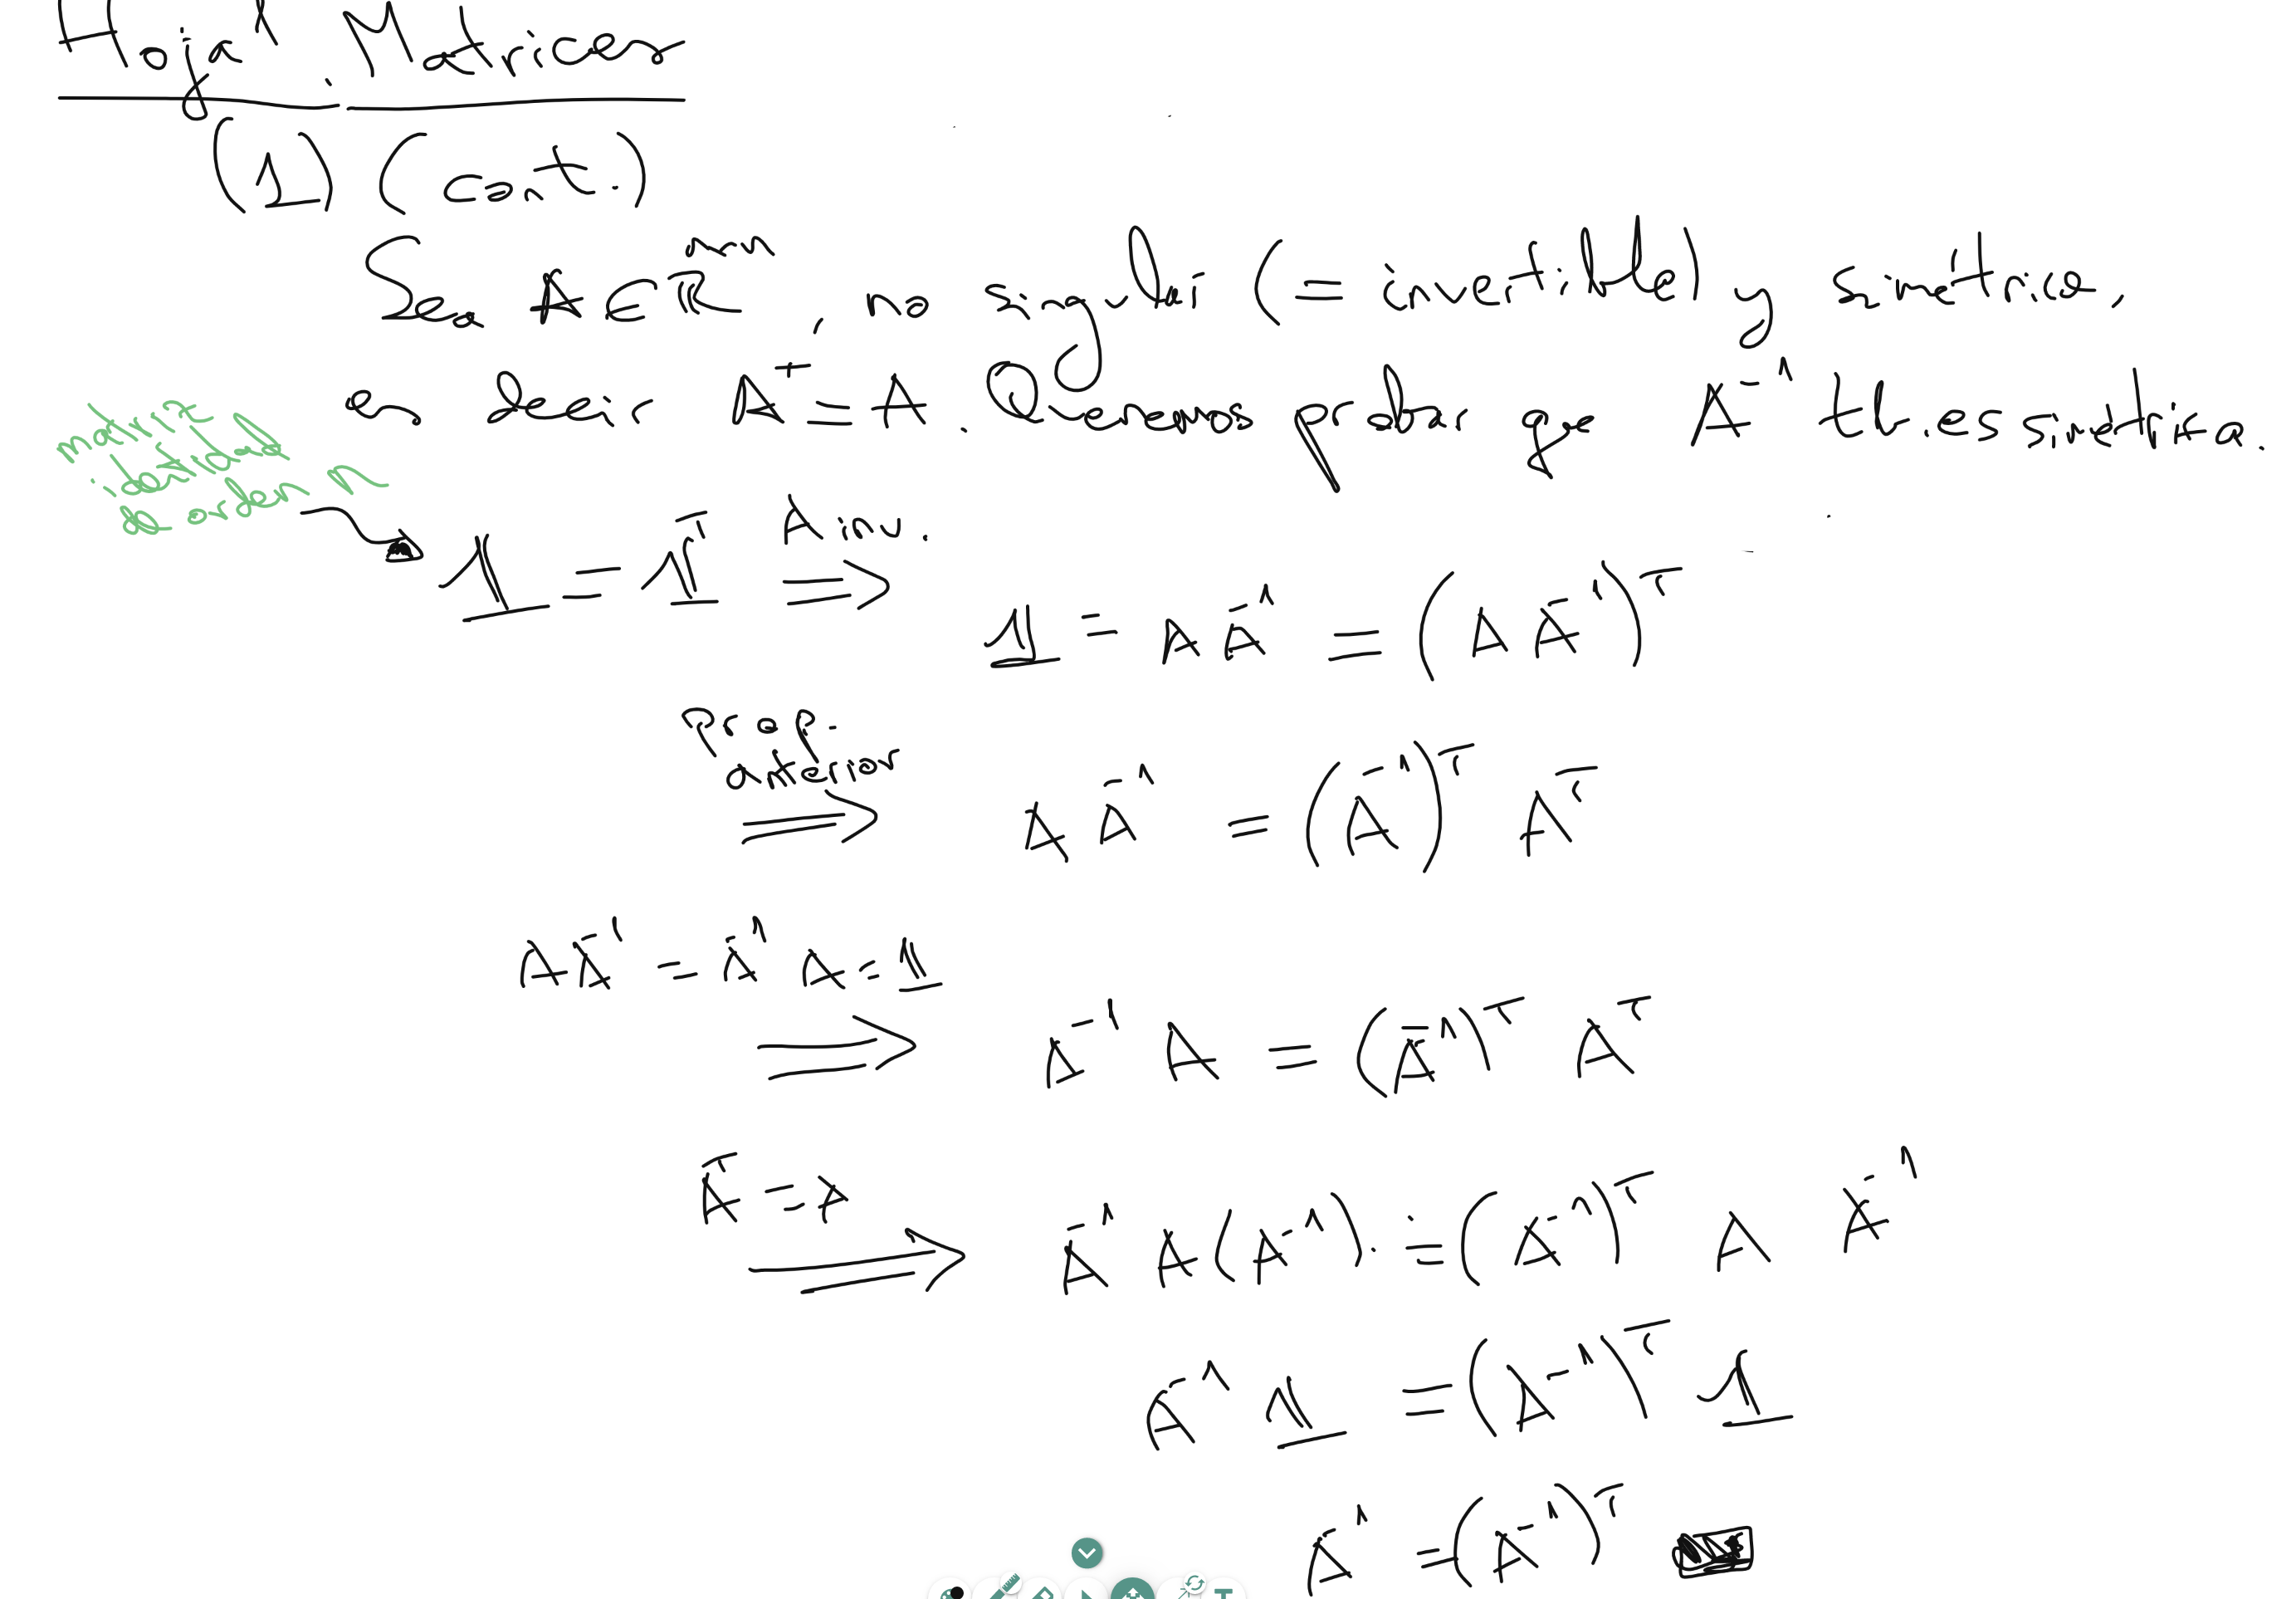 Hoja 1. Matrices
(1) (cont.)
Sea A ∈ ℝⁿˣⁿ, no singular (= invertible) y simétrica,
es decir Aᵀ = A. Queremos probar que A⁻¹ tb. es simétrica.
matriz
identidad
de orden n
𝟙 = 𝟙ᵀ
A inv.
⟹
𝟙 = A A⁻¹ = (A A⁻¹)ᵀ
prop.
anterior
⟹ A A⁻¹ = (A⁻¹)ᵀ Aᵀ
A A⁻¹ = A⁻¹ A = 𝟙
⟹ A⁻¹ A = (A⁻¹)ᵀ Aᵀ
Aᵀ = A
⟹ A⁻¹ A (A⁻¹) = (A⁻¹)ᵀ A A⁻¹
A⁻¹ 𝟙 = (A⁻¹)ᵀ 𝟙
A⁻¹ = (A⁻¹)ᵀ